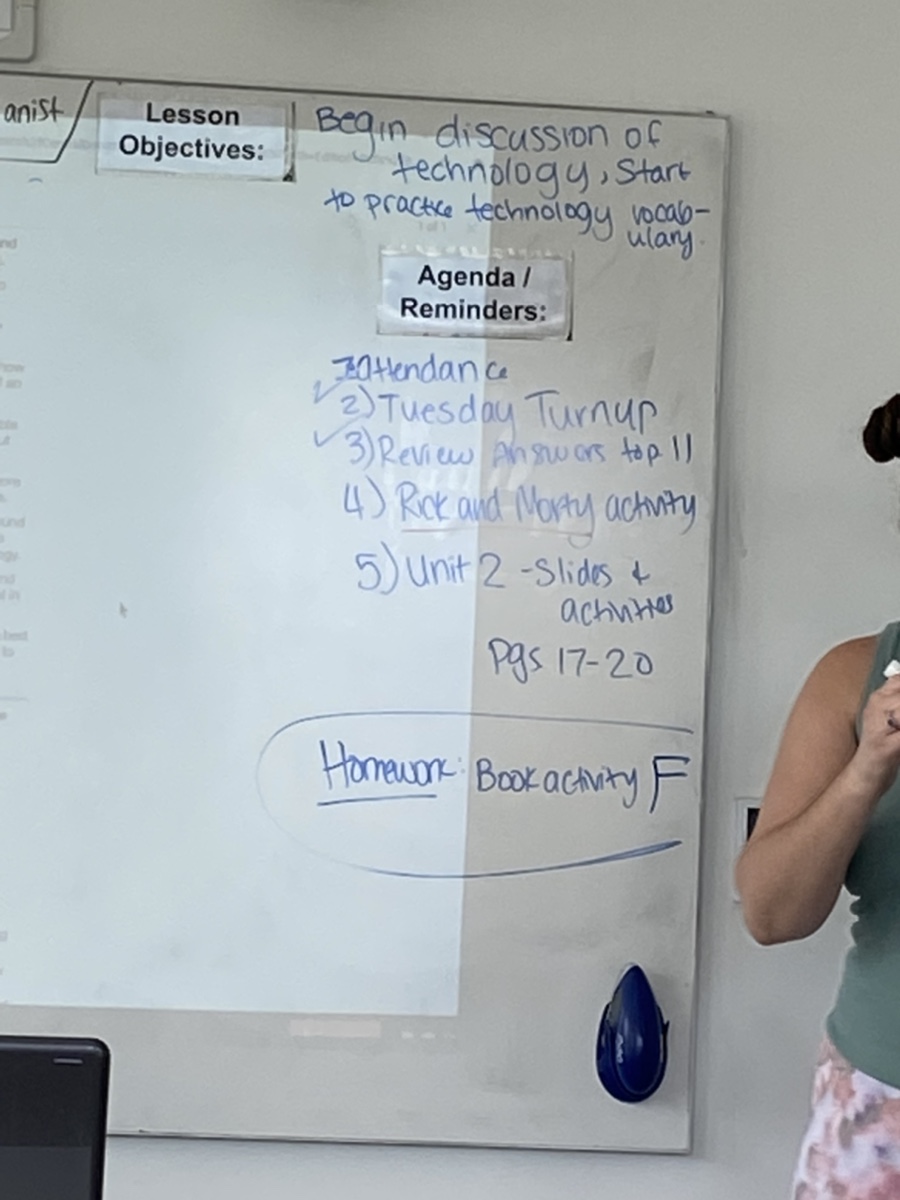 anist
Lesson
Objectives:
Begin discussion of
technology, Start
to practice technology vocab-
ulary.
Agenda /
Reminders:
attendance
2) Tuesday Turnup
3) Review Answers to p 11
4) Rick and Morty activity
5) Unit 2 - Slides &
activities
Pgs 17-20
Homework: Book activity F